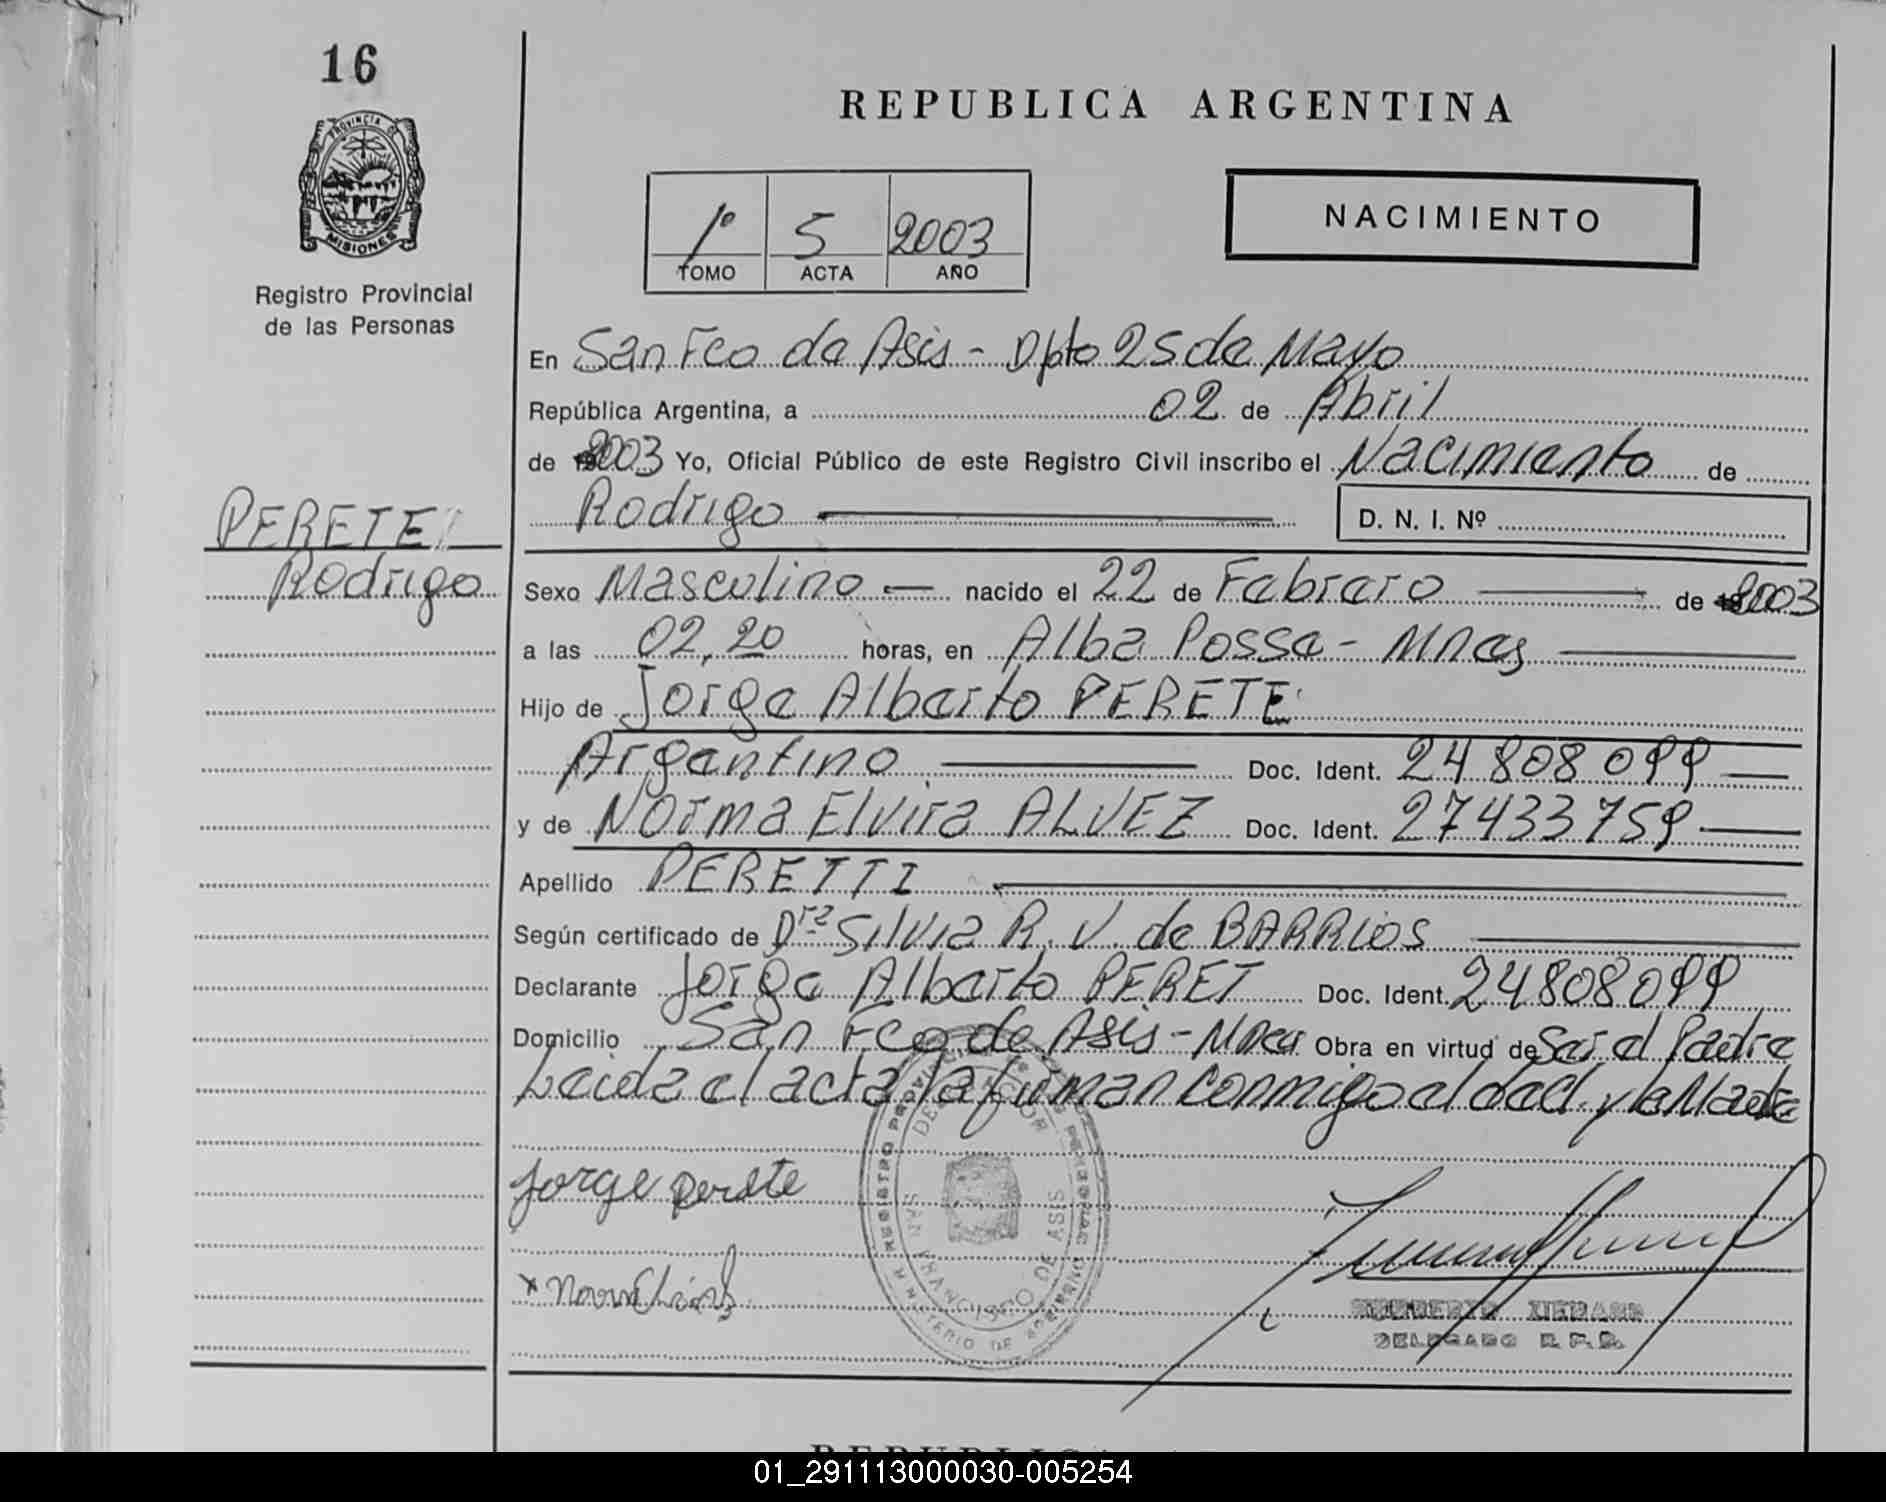 16
REPUBLICA ARGENTINA
PROVINCIA DE
MISIONES
NACIMIENTO
1º 5 2003
TOMO ACTA AÑO
Registro Provincial
de las Personas
En San Fco de Asis - Dpto 25 de Mayo
República Argentina, a 02 de Abril
de 2003 Yo, Oficial Público de este Registro Civil inscribo el Nacimiento de
Rodrigo D. N. I. Nº
PERETE
Rodrigo
Sexo Masculino — nacido el 22 de Febrero de 2003
a las 02,20 horas, en Alba Posse - Mnes
Hijo de Jorge Alberto PERETE
Argentino Doc. Ident. 24 808 099
y de Norma Elvira ALVEZ Doc. Ident. 27433759
Apellido PERETTI
Según certificado de Dra Silvia R. V. de BARRIOS
Declarante Jorge Alberto PERET Doc. Ident. 24808099
Domicilio San Fco de Asis - Mnes Obra en virtud de Ser el Padre
Leida el acta la firman conmigo el decl. y la Madre
Jorge perete
REGISTRO PROVINCIAL DE LAS PERSONAS
SAN FRANCISCO DE ASIS
MINISTERIO DE GOBIERNO
DELEGADO R.P.P.
REPUBLICA
01_291113000030-005254